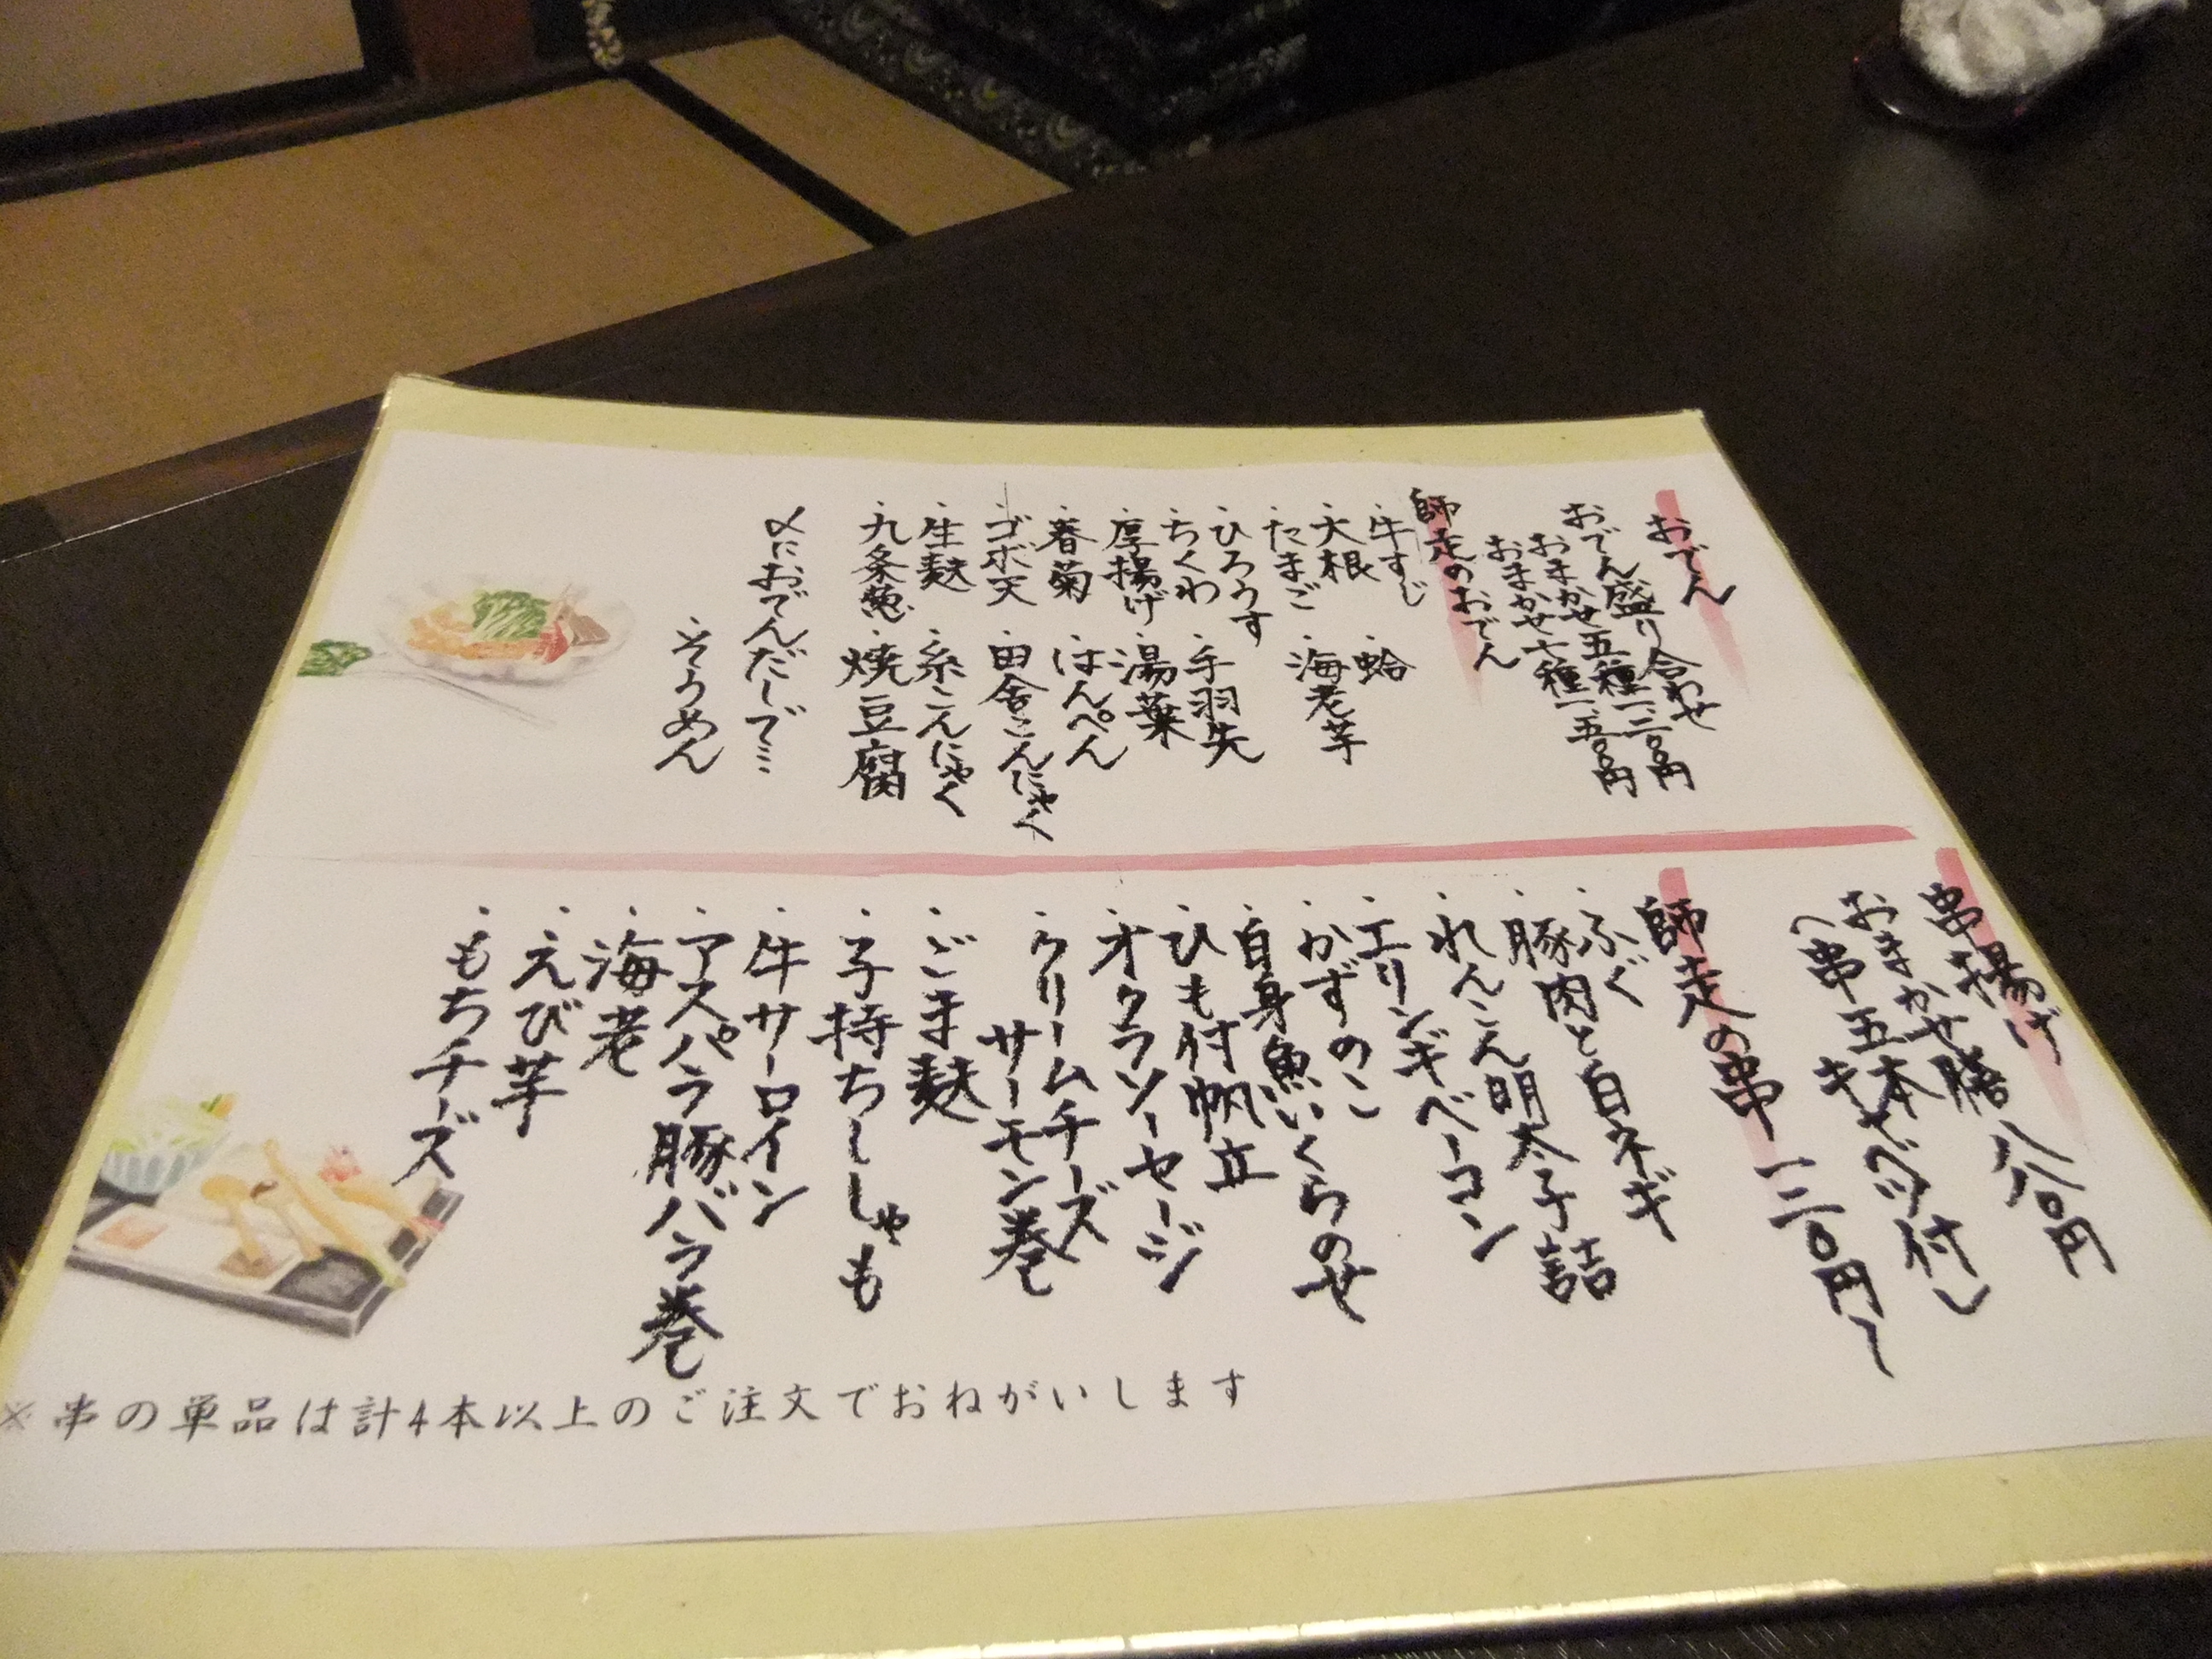 おでん
おでん盛り合わせ
おまかせ五種一、二〇〇円
おまかせ七種一、五〇〇円
師走のおでん
・牛すじ
・蛤
・大根
・海老芋
・たまご
・ひろうす
・手羽先
・ちくわ
・湯葉
・厚揚げ
・はんぺん
・春菊
・田舎こんにゃく
・ゴボ天
・糸こんにゃく
・生麩
・焼豆腐
・九条葱
〆におでんだしで…
・そうめん
串揚げ
おまかせ膳 八八〇円
(串五本キャベツ付)
師走の串 一二〇円〜
・ふぐ
・豚肉と白ネギ
・れんこん明太子詰
・エリンギベーコン
・かずのこ
・白身魚いくらのせ
・ひも付帆立
・オクラソーセージ
・クリームチーズ
サーモン巻
・ごま麩
・子持ちししゃも
・牛サーロイン
・アスパラ豚バラ巻
・海老
・えび芋
・もちチーズ
※串の単品は計4本以上のご注文でおねがいします